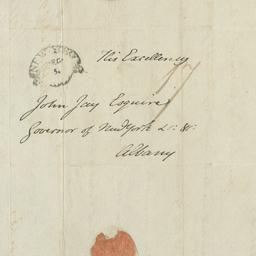 His Excellency
17
John Jay Esquire
Governor of New York &c: &c:
Albany